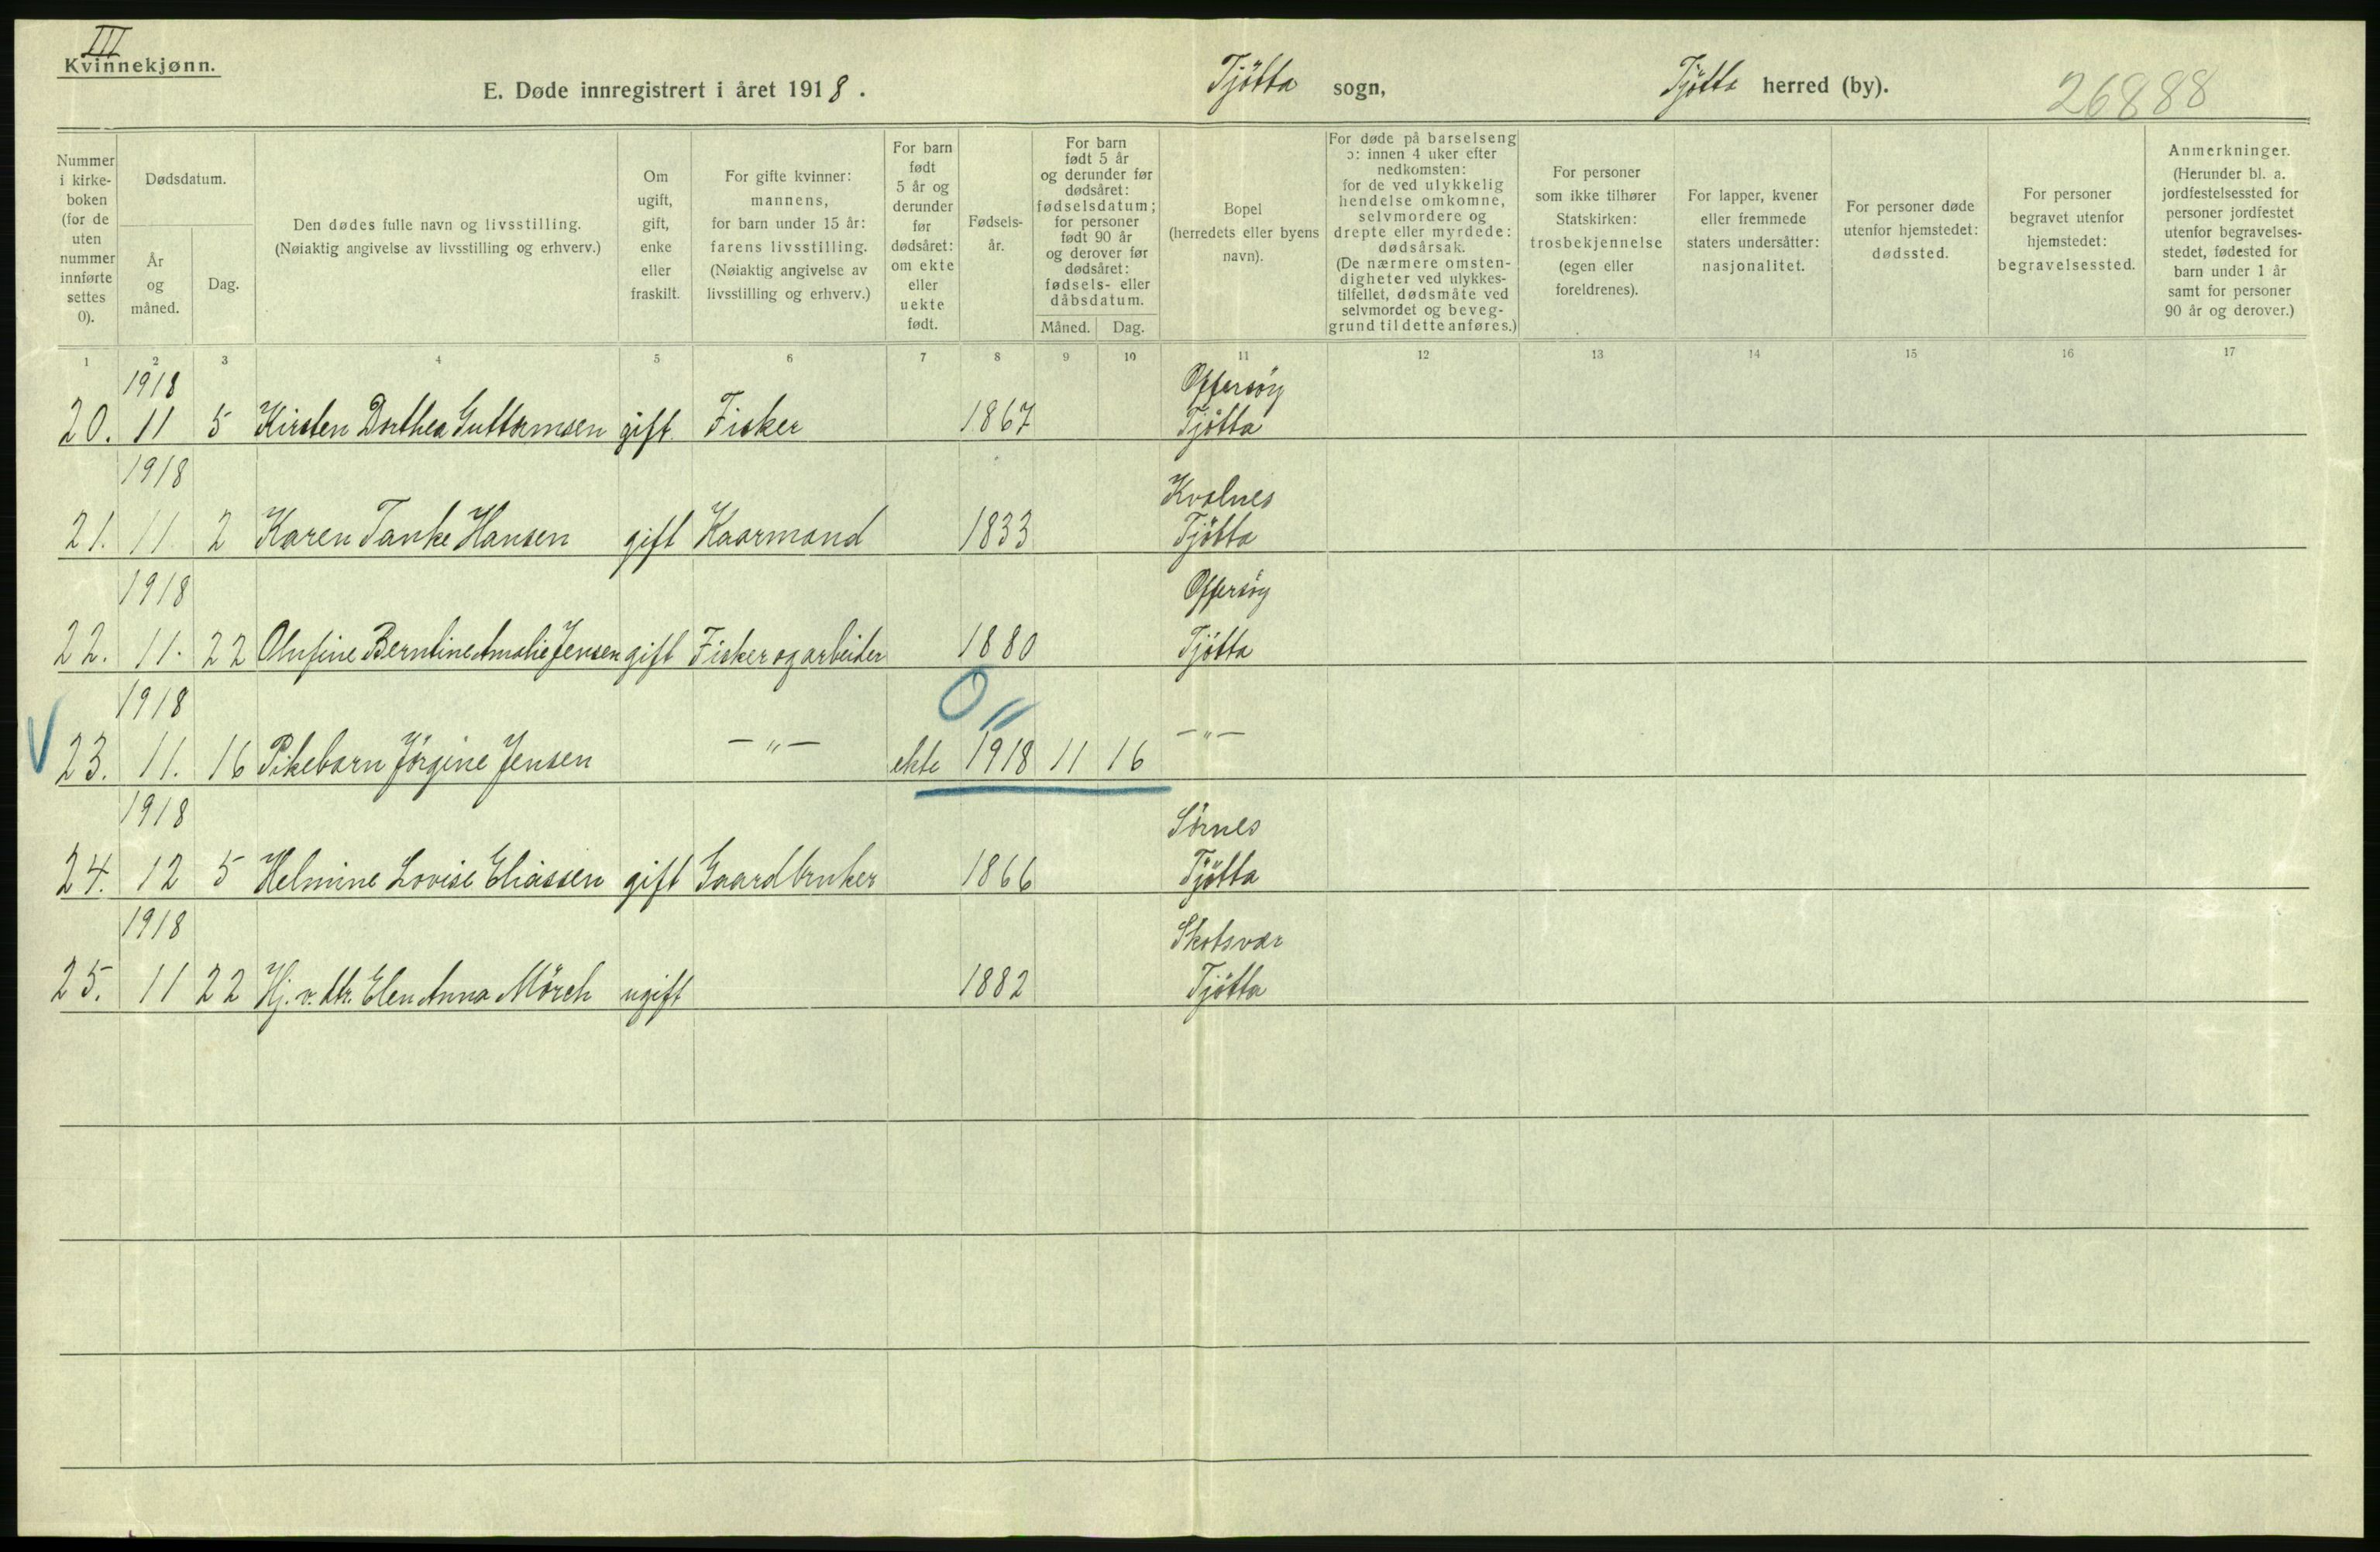 III
Kvinnekjønn.
E. Døde innregistrert i året 1918.
Tjötta sogn,
Tjøtta herred (by).
26888
Nummer i kirkeboken (for de uten nummer innførte settes 0).
Dødsdatum.
År og måned.
Dag.
Den dødes fulle navn og livsstilling.
(Nøiaktig angivelse av livsstilling og erhverv.)
Om ugift, gift, enke eller fraskilt.
For gifte kvinner: mannens, for barn under 15 år: farens livsstilling. (Nøiaktig angivelse av livsstilling og erhverv.)
For barn født 5 år og derunder før dødsåret: om ekte eller uekte født.
Fødsels-år.
For barn født 5 år og derunder før dødsåret: fødselsdatum; for personer født 90 år og derover før dødsåret: fødsels- eller dåbsdatum.
Måned. Dag.
Bopel (herredets eller byens navn).
For døde på barselseng ɔ: innen 4 uker efter nedkomsten: for de ved ulykkelig hendelse omkomne, selvmordere og drepte eller myrdede: dødsårsak. (De nærmere omstendigheter ved ulykkestilfellet, dødsmåte ved selvmordet og beveggrund til dette anføres.)
For personer som ikke tilhører Statskirken: trosbekjennelse (egen eller foreldrenes).
For lapper, kvener eller fremmede staters undersåtter: nasjonalitet.
For personer døde utenfor hjemstedet: dødssted.
For personer begravet utenfor hjemstedet: begravelsessted.
Anmerkninger. (Herunder bl. a. jordfestelsessted for personer jordfestet utenfor begravelsesstedet, fødested for barn under 1 år samt for personer 90 år og derover.)
1 2 3 4 5 6 7 8 9 10 11 12 13 14 15 16 17
1918 Offersöy
20. 11 5 Kirsten Dorthea Guttormsen gift Fisker 1867 Tjötta
1918 Kvalnes
21. 11 2 Karen Tanke Hansen gift Kaarmand 1833 Tjötta
1918 Offersöy
22. 11. 22 Olufine Berntine Amalie Jensen gift Fisker og arbeider 1880 Tjötta
1918
V 23. 11. 16 Pikebarn Jörgine Jensen — " — ekte 1918 11 16 — " —
1918 Sörnes
24. 12 5 Helmine Lovise Eliassen gift Gaardbruker 1866 Tjötta
1918 Skotsvær
25. 11 22 Hj. v. dtr. Elen Anna Mörch ugift 1882 Tjötta